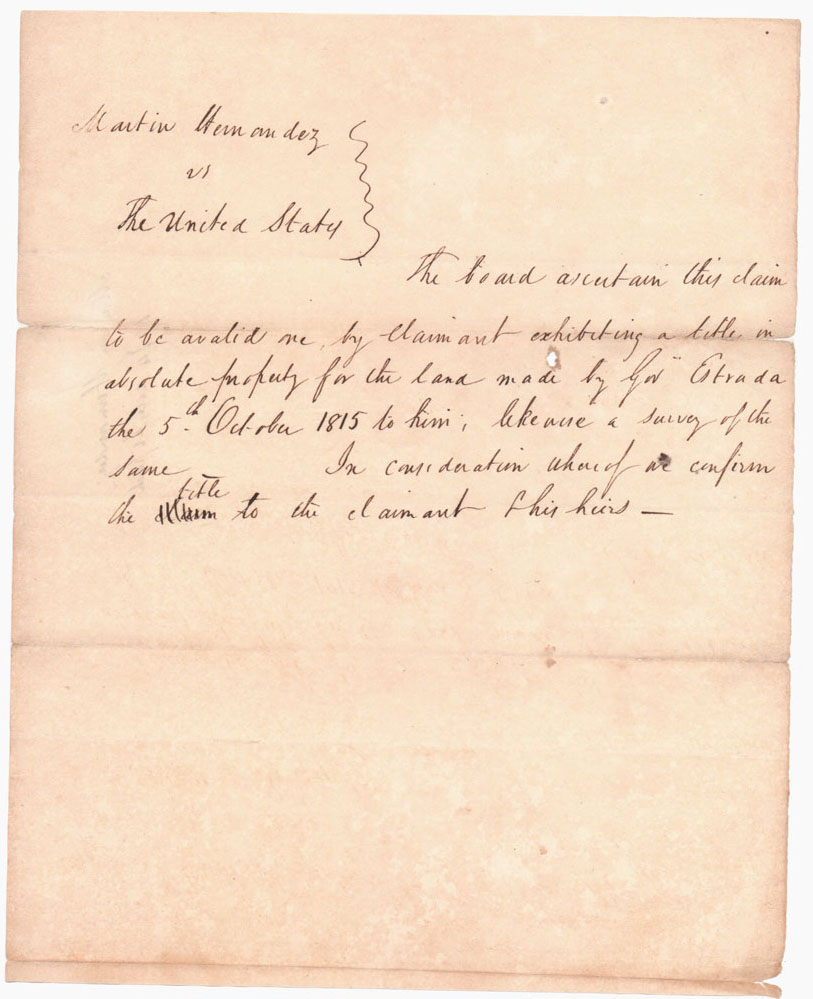 Martin Hernandez
vs
The United States
The board ascertain this claim
to be a valid one, by claimant exhibiting a title in
absolute property for the land made by Govr Estrada
the 5th October 1815 to him; likewise a survey of the
same In consideration whereof we confirm
title
the to the claimant & his heirs —